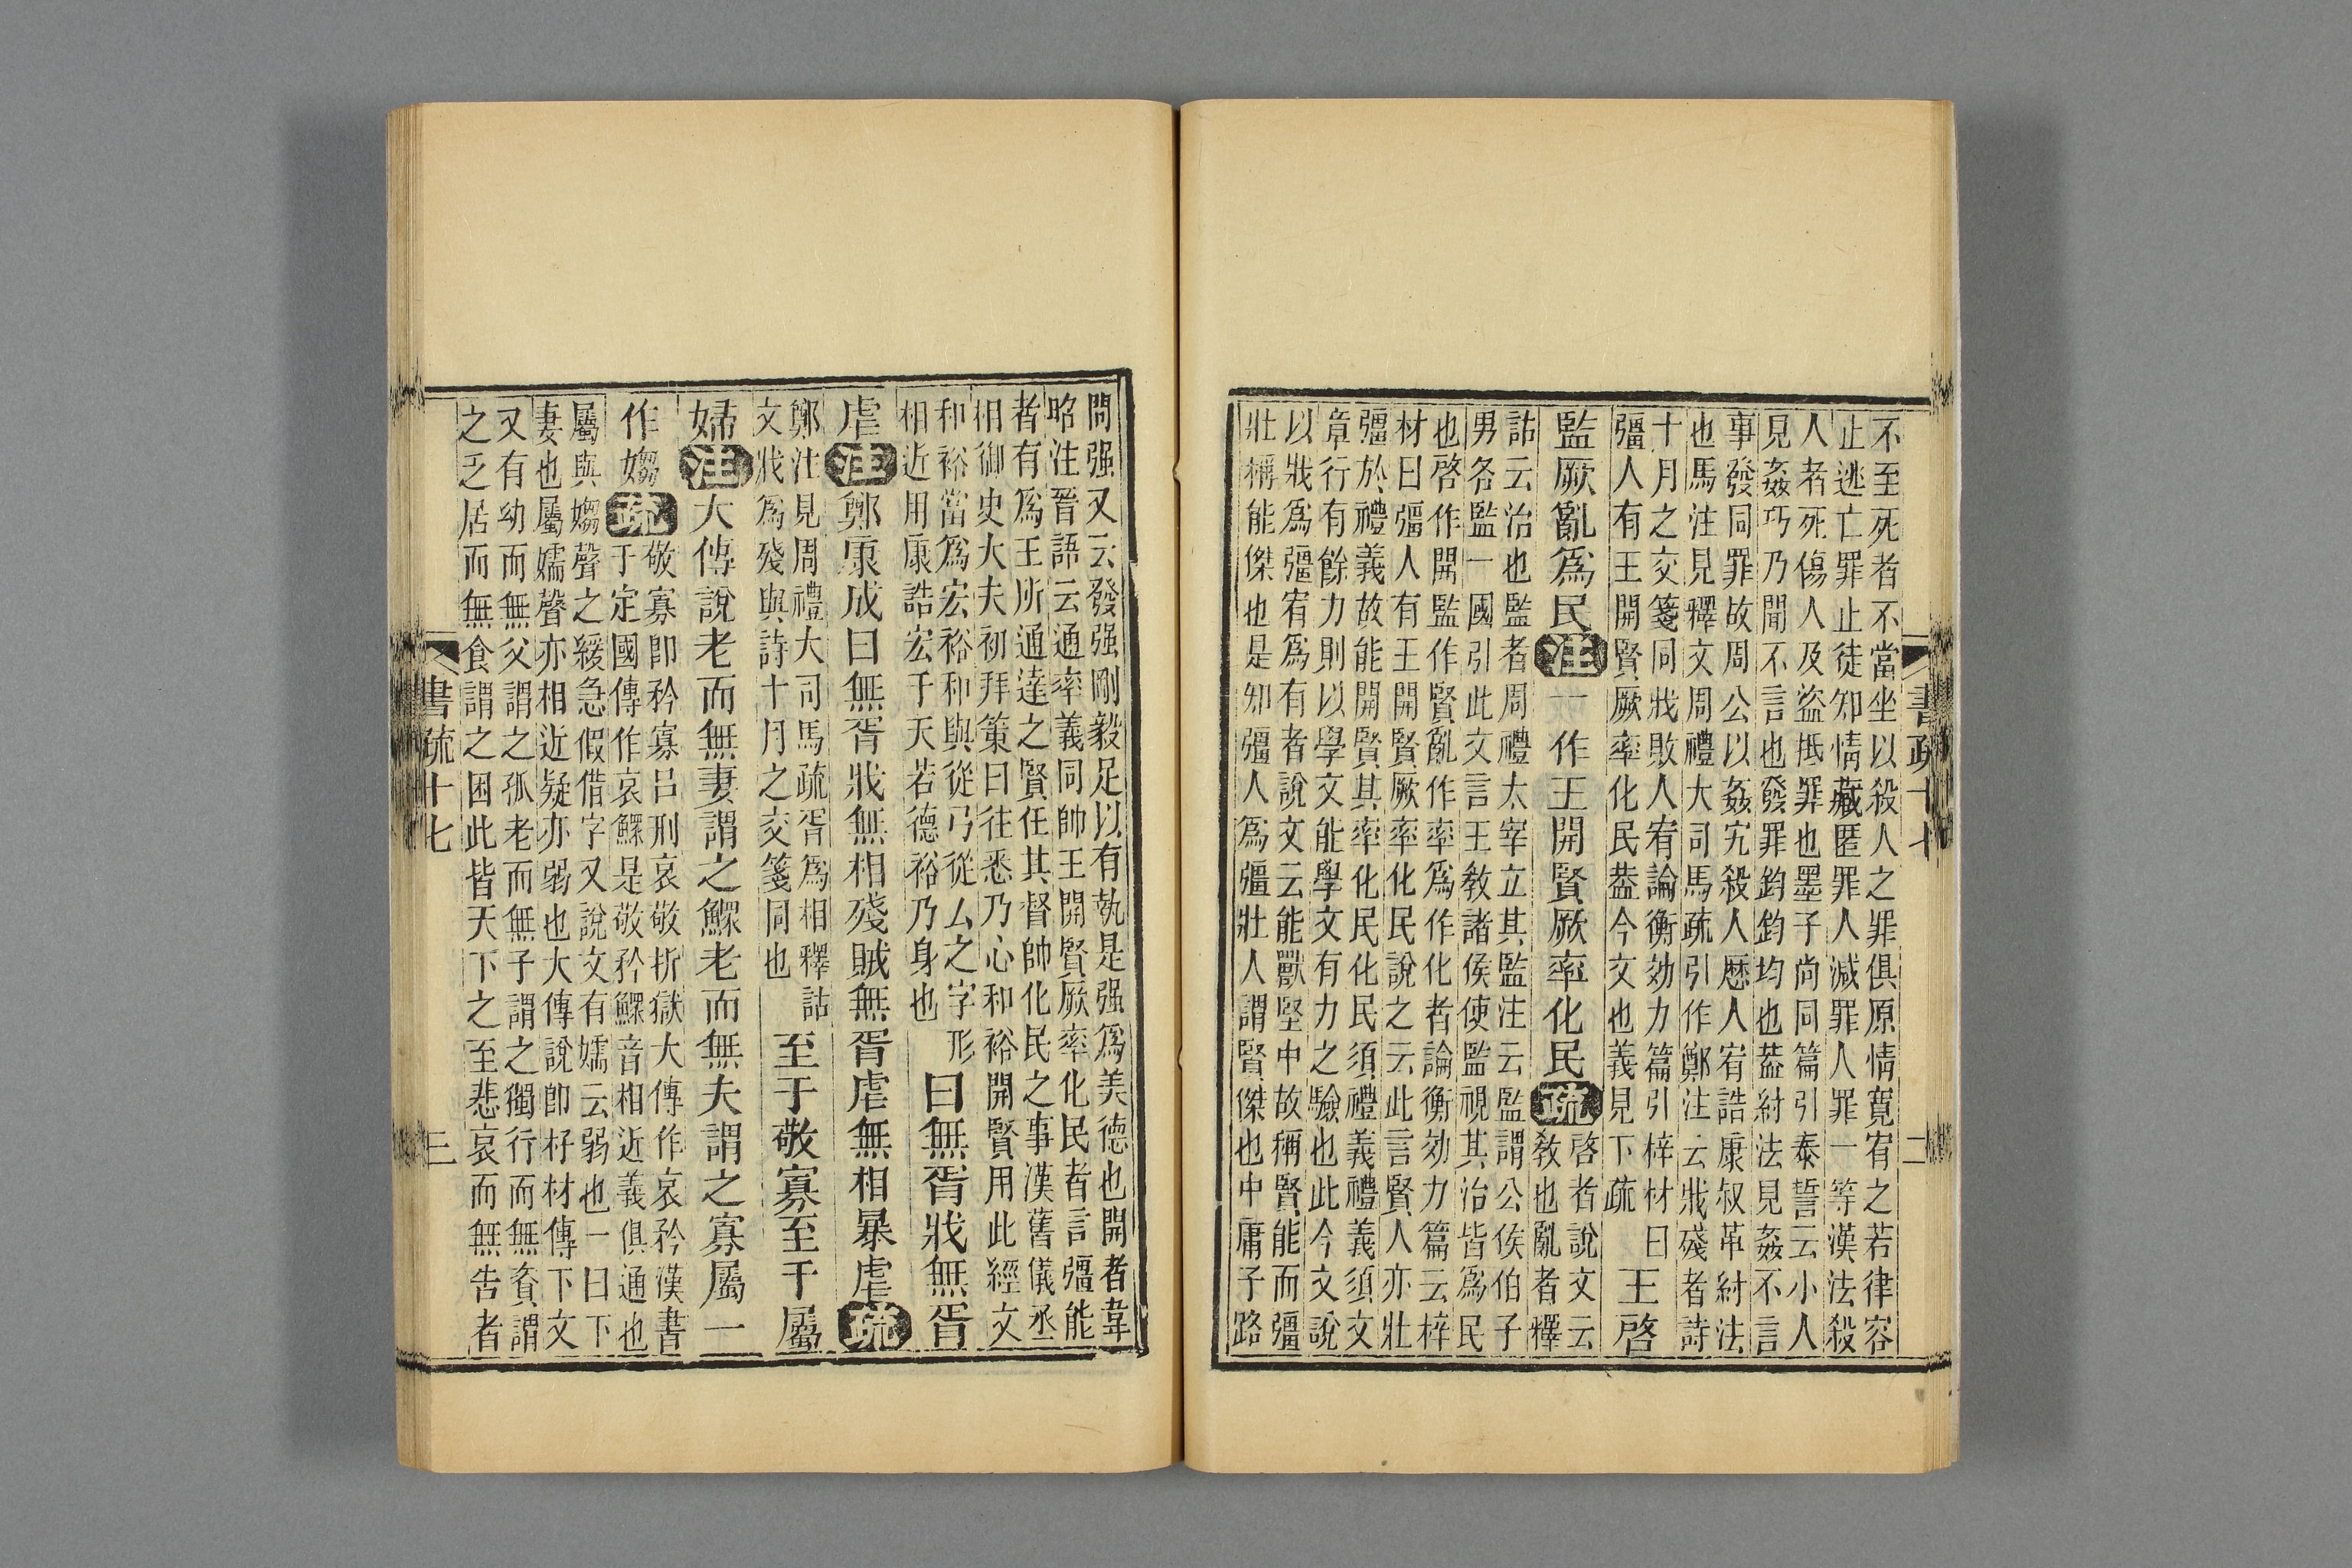 不至死者不當坐以殺人之罪俱原情寛宥之若律容
止逃亡罪止徒知情藏匿罪人減罪人罪一等漢法殺
人者死傷人及盜抵罪也墨子尚同篇引泰誓云小人
見姦巧乃聞不言也發罪鈞鈞均也葢紂法見姦不言
事發同罪故周公以姦宄殺人歷人宥誥康叔革紂法
也馬注見釋文周禮大司馬疏引作鄭注云戕殘者詩
十月之交箋同戕敗人宥論衡効力篇引梓材曰
彊人有王開賢厥率化民葢今文也義見下疏
王啓
監厥亂爲民注一作王開賢厥率化民疏
啓者說文云
教也亂者釋
詁云治也監者周禮太宰立其監注云監謂公侯伯子
男各監一國引此文言王敎諸侯使監視其治皆爲民
也啓作開監作賢亂作率爲作化者論衡効力篇云梓
材曰彊人有王開賢厥率化民說之云此言賢人亦壯
彊於禮義故能開賢其率化民化民須禮義禮義須文
章行有餘力則以學文能學文有力之驗也此今文說
以戕爲彊宥爲有者說文云能獸堅中故稱賢能而彊
壯稱能傑也是知彊人爲彊壯人謂賢傑也中庸子路
書疏十七
二
問强又云發强剛毅足以有執是强爲美德也開者韋
昭注晉語云通率義同帥王開賢厥率化民者言彊能
者有爲王所通達之賢任其督帥化民之事漢舊儀丞
相御史大夫初拜策曰往悉乃心和裕開賢用此經文
和裕當爲宏裕和與從弓從厶之字形
相近用康誥宏于天若德裕乃身也
曰無胥戕無胥
虐注鄭康成曰無胥戕無相殘賊無胥虐無相暴虐疏
鄭注見周禮大司馬疏胥爲相釋詁
文戕爲殘與詩十月之交箋同也
至于敬寡至于屬
婦注大傅說老而無妻謂之鰥老而無夫謂之寡屬一
作媰疏
敬寡卽矜寡呂刑哀敬折獄大傳作哀矜漢書
于定國傳作哀鰥是敬矜鰥音相近義俱通也
屬與媰聲之緩急假借字又說文有嬬云弱也一曰下
妻也屬嬬聲亦相近疑亦弱也大傳說卽杍材傳下文
又有幼而無父謂之孤老而無子謂之獨行而無資謂
之乏居而無食謂之困此皆天下之至悲哀而無告者
書疏十七
三